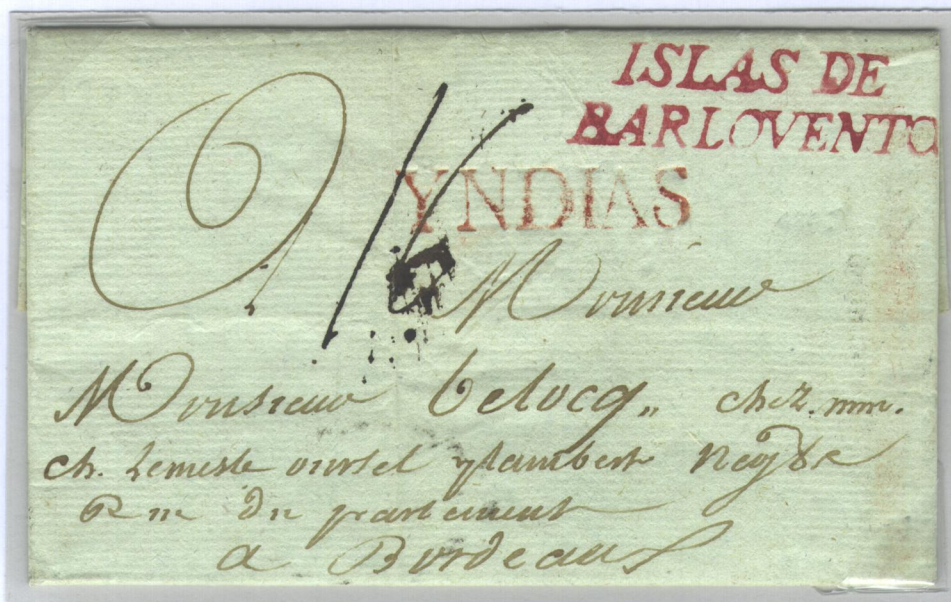 ISLAS DE
BARLOVENTO
YNDIAS
Monsieur
Monsieur belocq chez mm.
ch. Lemesle oursel
Rue du parlement
a Bordeaux